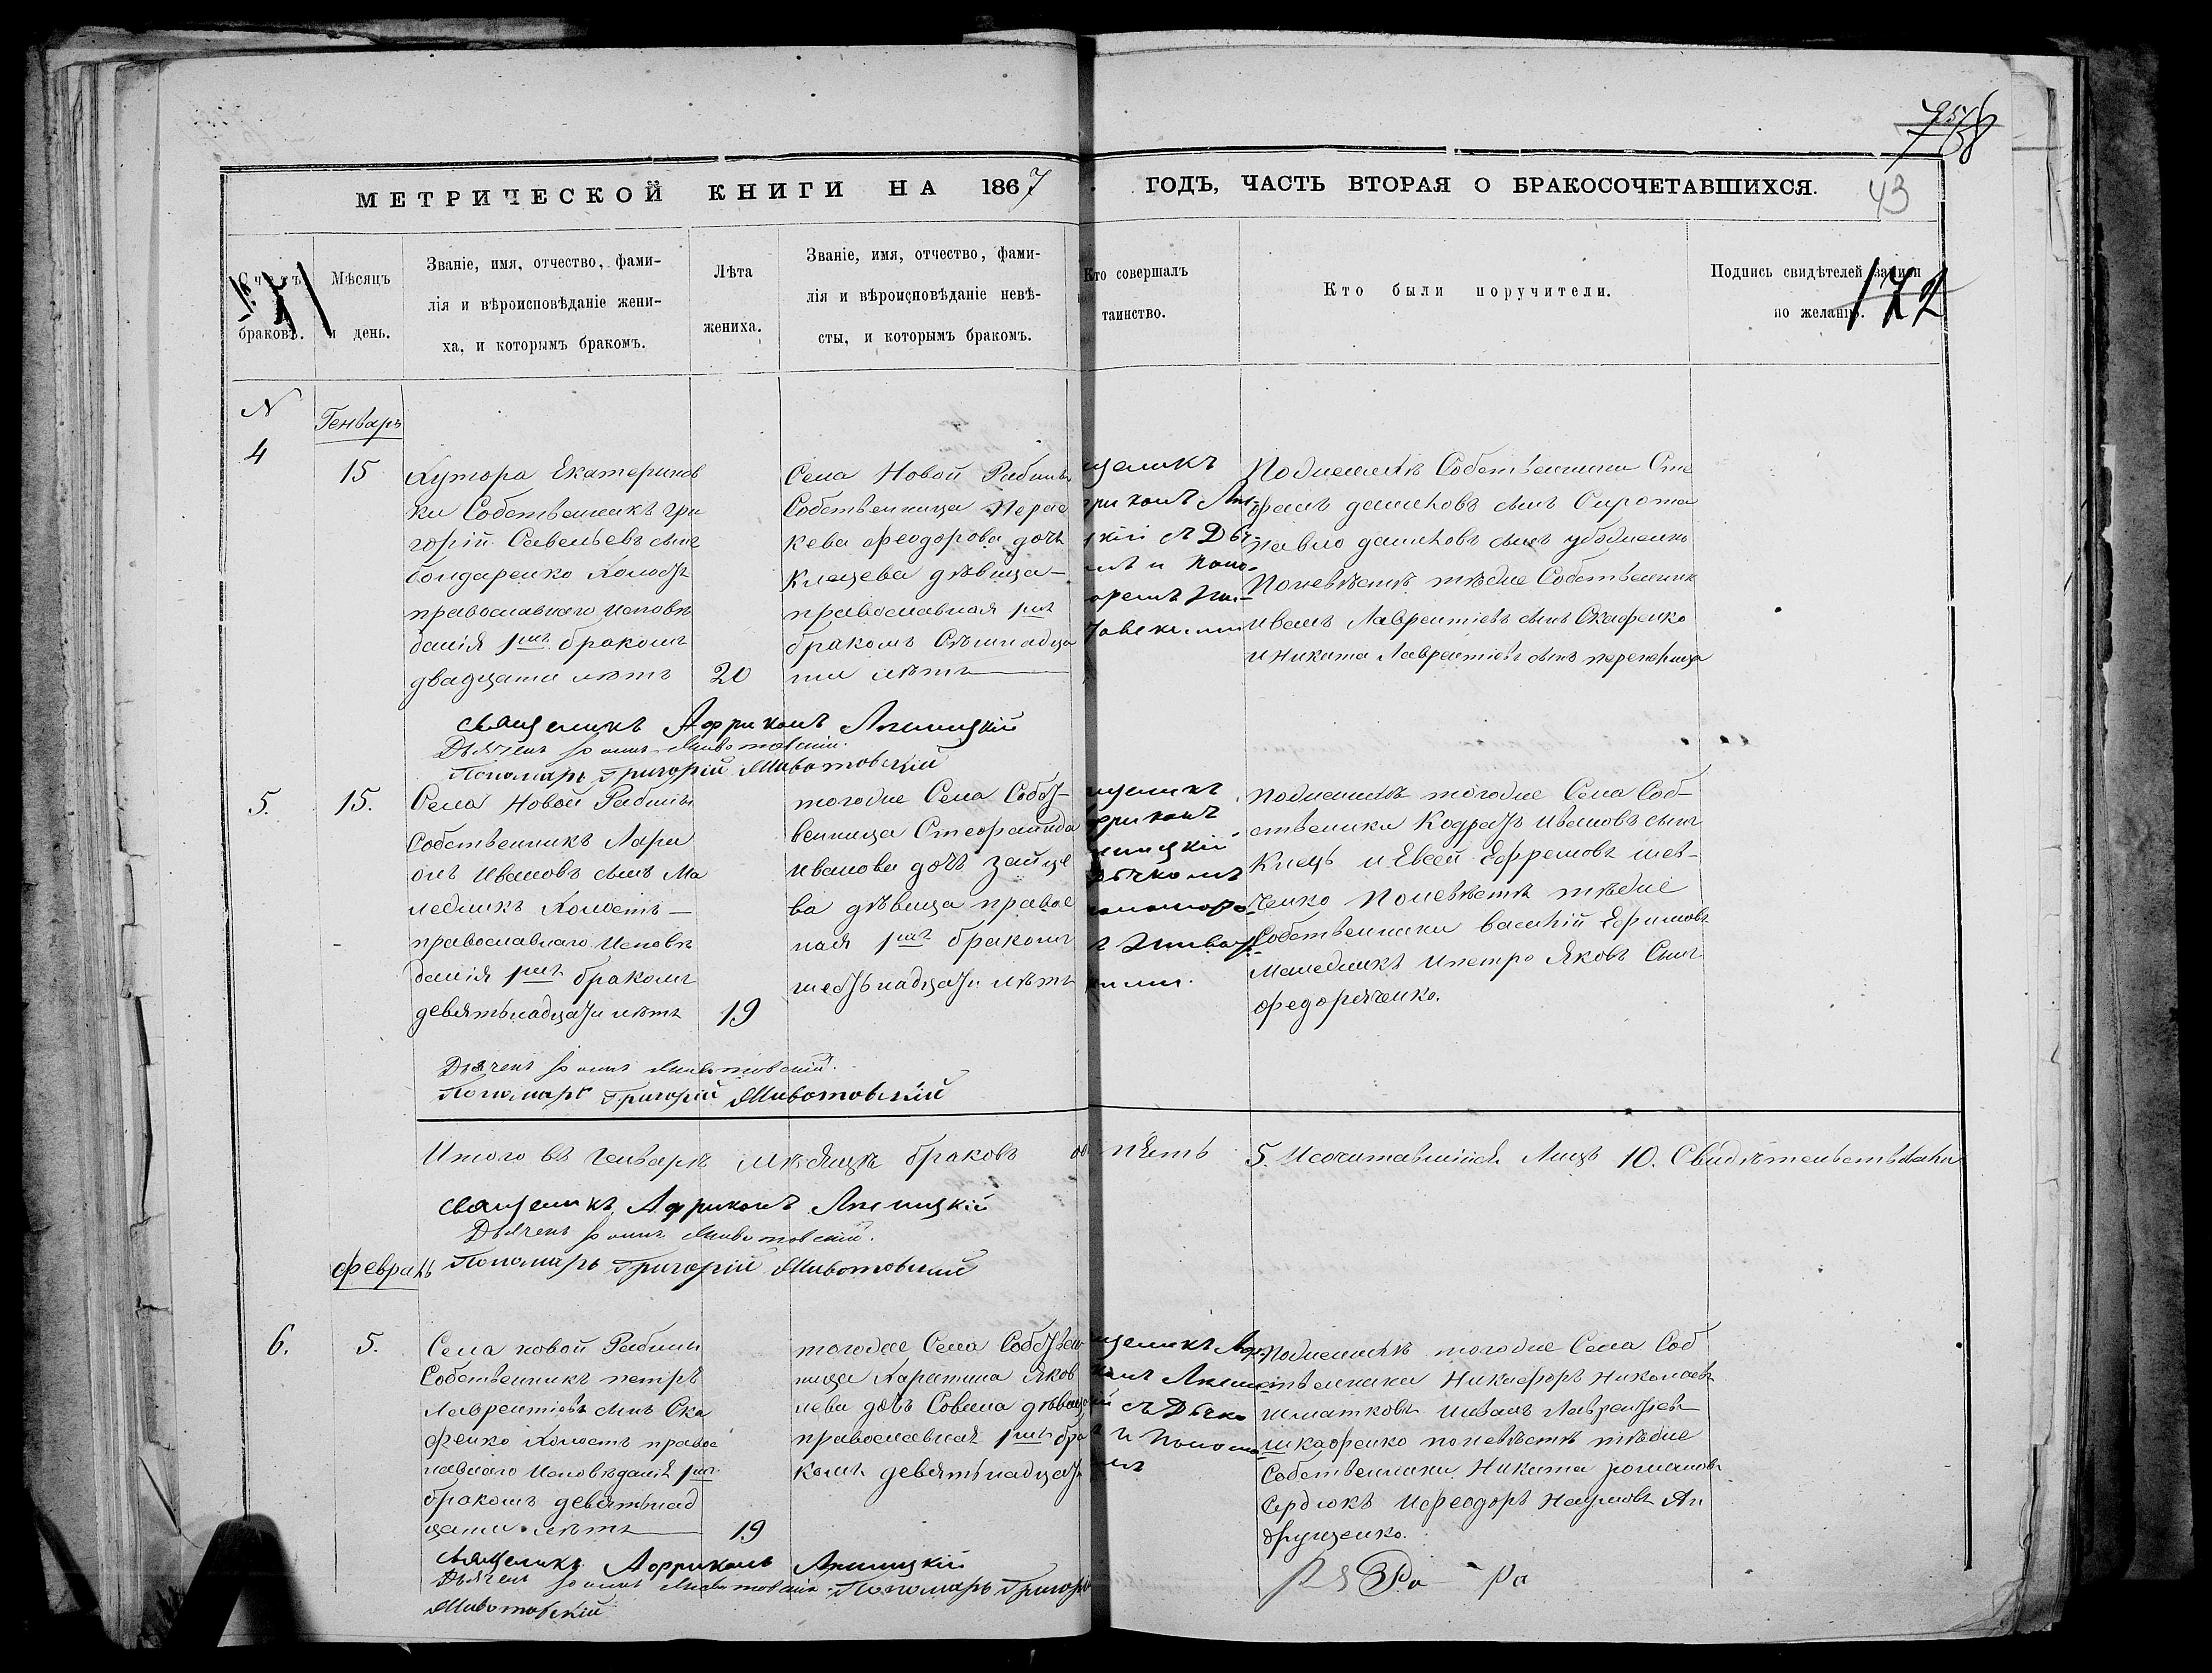 758
МЕТРИЧЕСКОЙ КНИГИ НА 1867 ГОДЪ, ЧАСТЬ ВТОРАЯ О БРАКОСОЧЕТАВШИХСЯ.
43
Счетъ браковъ.
Мѣсяцъ и день.
Званіе, имя, отчество, фами-
лія и вѣроисповѣданіе жени-
ха, и которымъ бракомъ.
Лѣта
жениха.
Званіе, имя, отчество, фами-
лія и вѣроисповѣданіе невѣ-
сты, и которымъ бракомъ.
Кто совершалъ
таинство.
Кто были поручители.
Подпись свидѣтелей записи
по желанію.
172
N
4
Генварь
15
Хутора Екатеринов
ки Собственникъ Гри
горій Савельевъ сынъ
бондаренко Холостъ
православнаго исповѣ
данія 1мъ бракомъ
двадцати лѣтъ
20
Села Новой Рябины
Собственница Парас
кева феодорова дочь
Клецева дѣвица —
православная 1мъ
бракомъ
ти лѣтъ
щеникъ
фриканъ
цкій съ Дьяч
мъ и Поно-
Поженихѣ Собственники
данъ сынъ Сирота
Павло сынъ
Поневѣстѣ тѣже Собственник
иванъ Лаврентіевъ сынъ Скафенко
и Никита Лаврентіевъ сынъ
священикъ Африканъ
Дьячекъ Іоаннъ Животовскій.
Пономарь Григорій Животовскій
5.
15.
Села Новой Рябины
Собственникъ Лари
онъ Ивановъ сынъ Ма
ледникъ Холостъ —
православнаго исповѣ
данія 1мъ бракомъ
девятьнадцати лѣтъ
19
тогоже Села Собст-
венница Стефанида
иванова дочь зайце
ва дѣвица правос
ная 1мъ бракомъ
шестьнадцати лѣтъ
щеникъ
фриканъ
цкій
Дьячкомъ
пономаре
ъ Живат
кими.
Поженихѣ тогоже Села Соб-
ственники Кодратъ Ивановъ сынъ
Клецъ и Евсей Ефремовъ шев-
ченко Поневѣстѣ тѣже
Собственники василій Ефимовъ
Маледникъ ипетро Яковъ Сынъ
федоряченко.
Дьячекъ Іоаннъ Животовскій.
Пономарь Григорій Животовскій
Итого въ Генварѣ мѣсяцѣ браковъ пять 5. Исочитавшихся Лицъ 10. Свидѣтельствовали
священикъ Африканъ
Дьячекъ Іоаннъ Животовскій.
Пономарь Григорій Животовский
февраль
6.
5.
Села новой Рябины
Собственникъ петръ
Лаврентіевъ сынъ Ска
фенко Холостъ правос
лавнаго исповѣданія 1мъ
бракомъ девятьнад
цати лѣтъ
19
тогоже Села Собствен
ница Харитина Яков
лева дочь Совина дѣвица
православная 1мъ бра
комъ девятьнадцати
щеникъ Афри
канъ
ій съ Дьячко
ъ и Понома
мъ
Поженихѣ тогоже Села Соб
ственники Никифоръ Николаевъ
шматковъ иванъ Лаврентьев
шкафенко поневѣстѣ тѣже
Собственники Никита романовъ
Сердюкъ ифеодоръ Наумовъ Ан
друщенко.
священикъ Африканъ
Дьячекъ Іоаннъ Животовскій. Пономарь Григорій
Животовскій